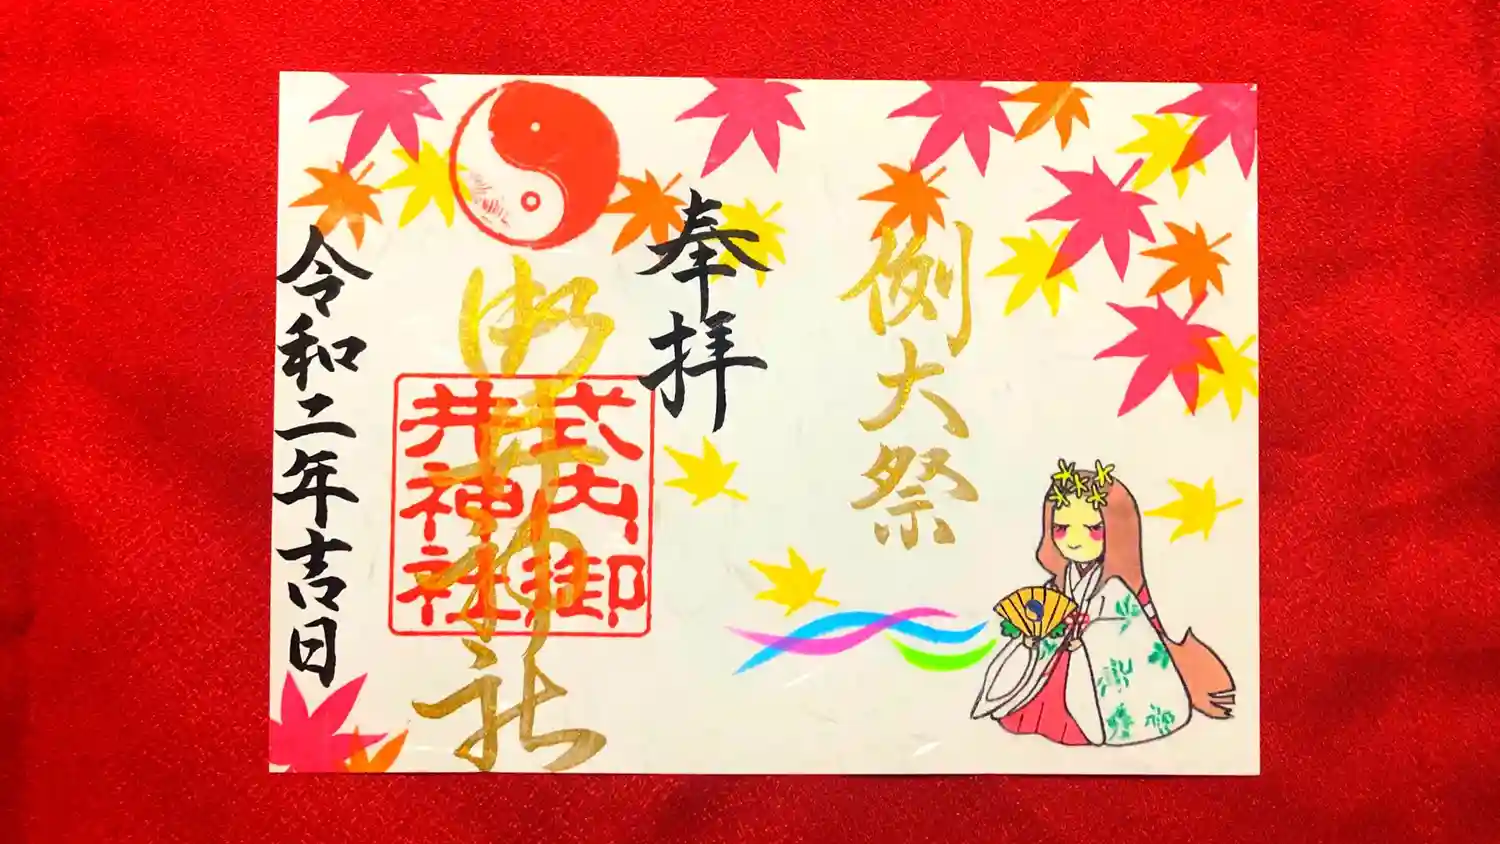 例大祭
奉拝
御井神社
式内御
井神社
令和二年吉日